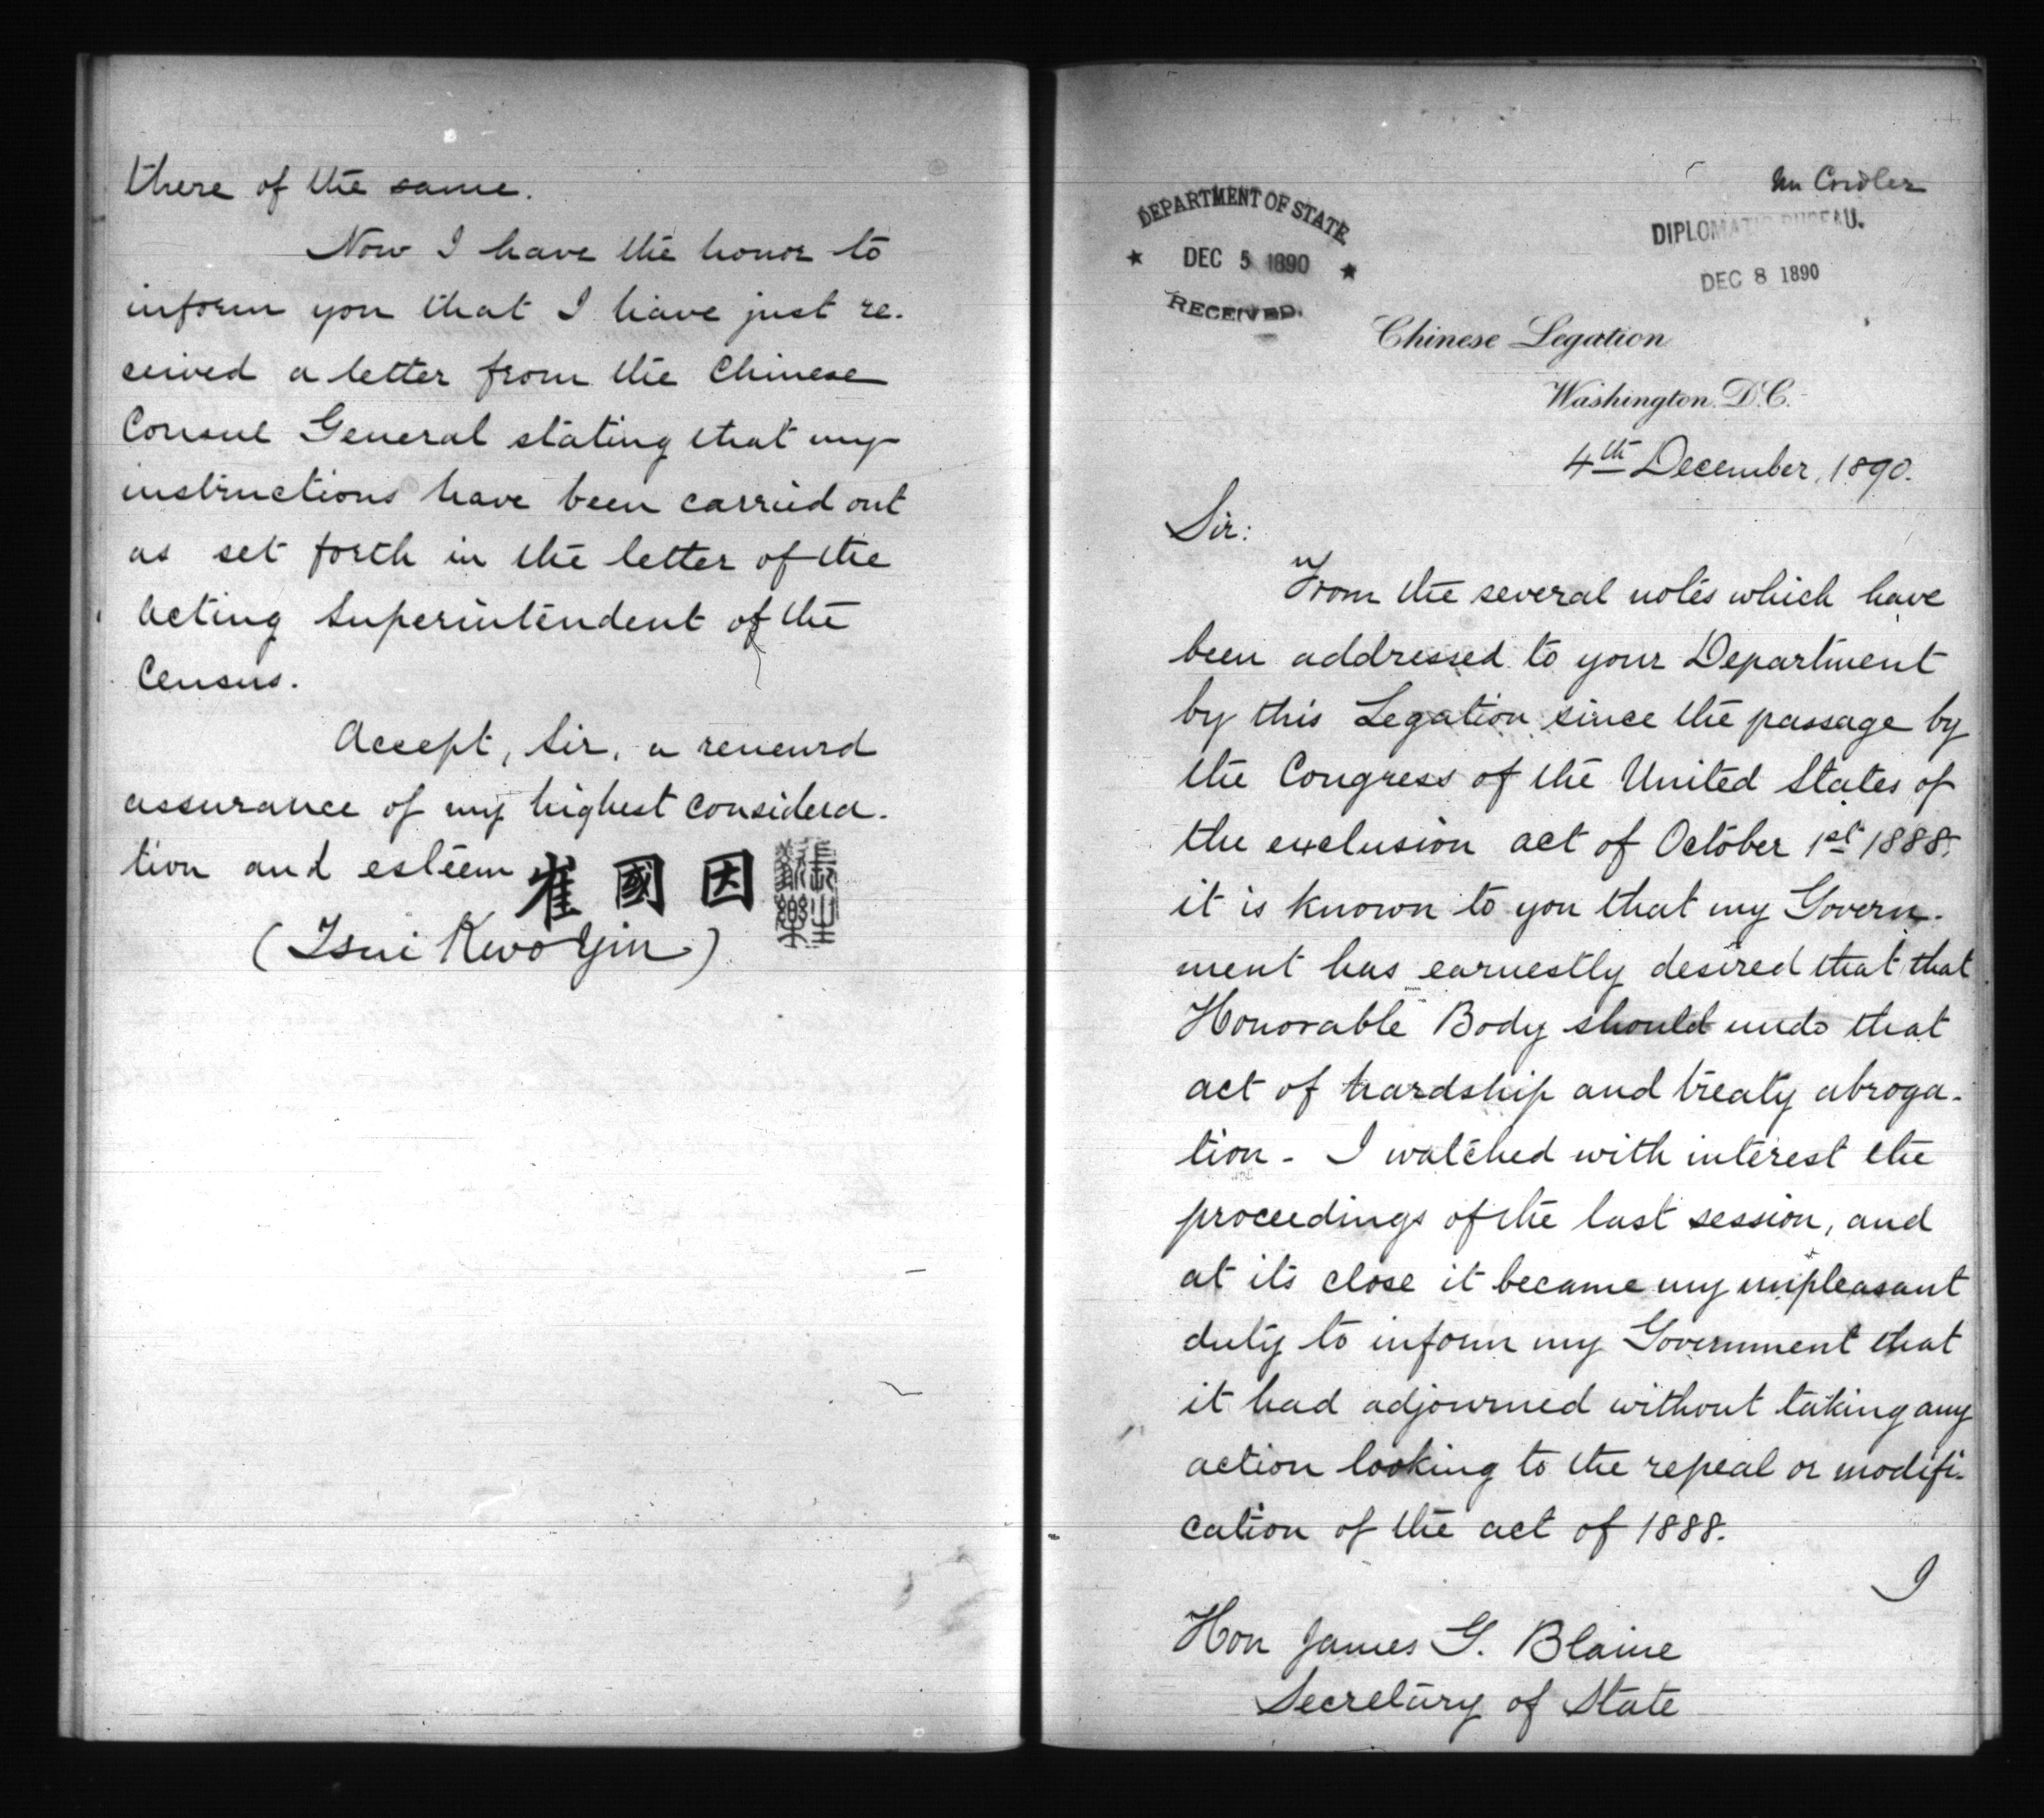 there of the same.
Now I have the honor to
inform you that I have just re-
ceived a letter from the Chinese
Consul General stating that my
instructions have been carried out
as set forth in the letter of the
Acting Superintendent of the
Census.
Accept, Sir, a renewed
assurance of my highest considera-
tion and esteem
崔國因
(Tsui Kwo Yin)
Mr Cridler
DEPARTMENT OF STATE
DEC 5 1890
RECEIVED.
DIPLOMATIC BUREAU.
DEC 8 1890
Chinese Legation
Washington, D.C.
4th December, 1890.
Sir:
From the several notes which have
been addressed to your Department
by this Legation since the passage by
the Congress of the United States of
the exclusion act of October 1st 1888,
it is known to you that my Govern-
ment has earnestly desired that that
Honorable Body should undo that
act of hardship and treaty abroga-
tion - I watched with interest the
proceedings of the last session, and
at its close it became my unpleasant
duty to inform my Government that
it had adjourned without taking any
action looking to the repeal or modifi-
cation of the act of 1888.
I
Hon James G. Blaine
Secretary of State